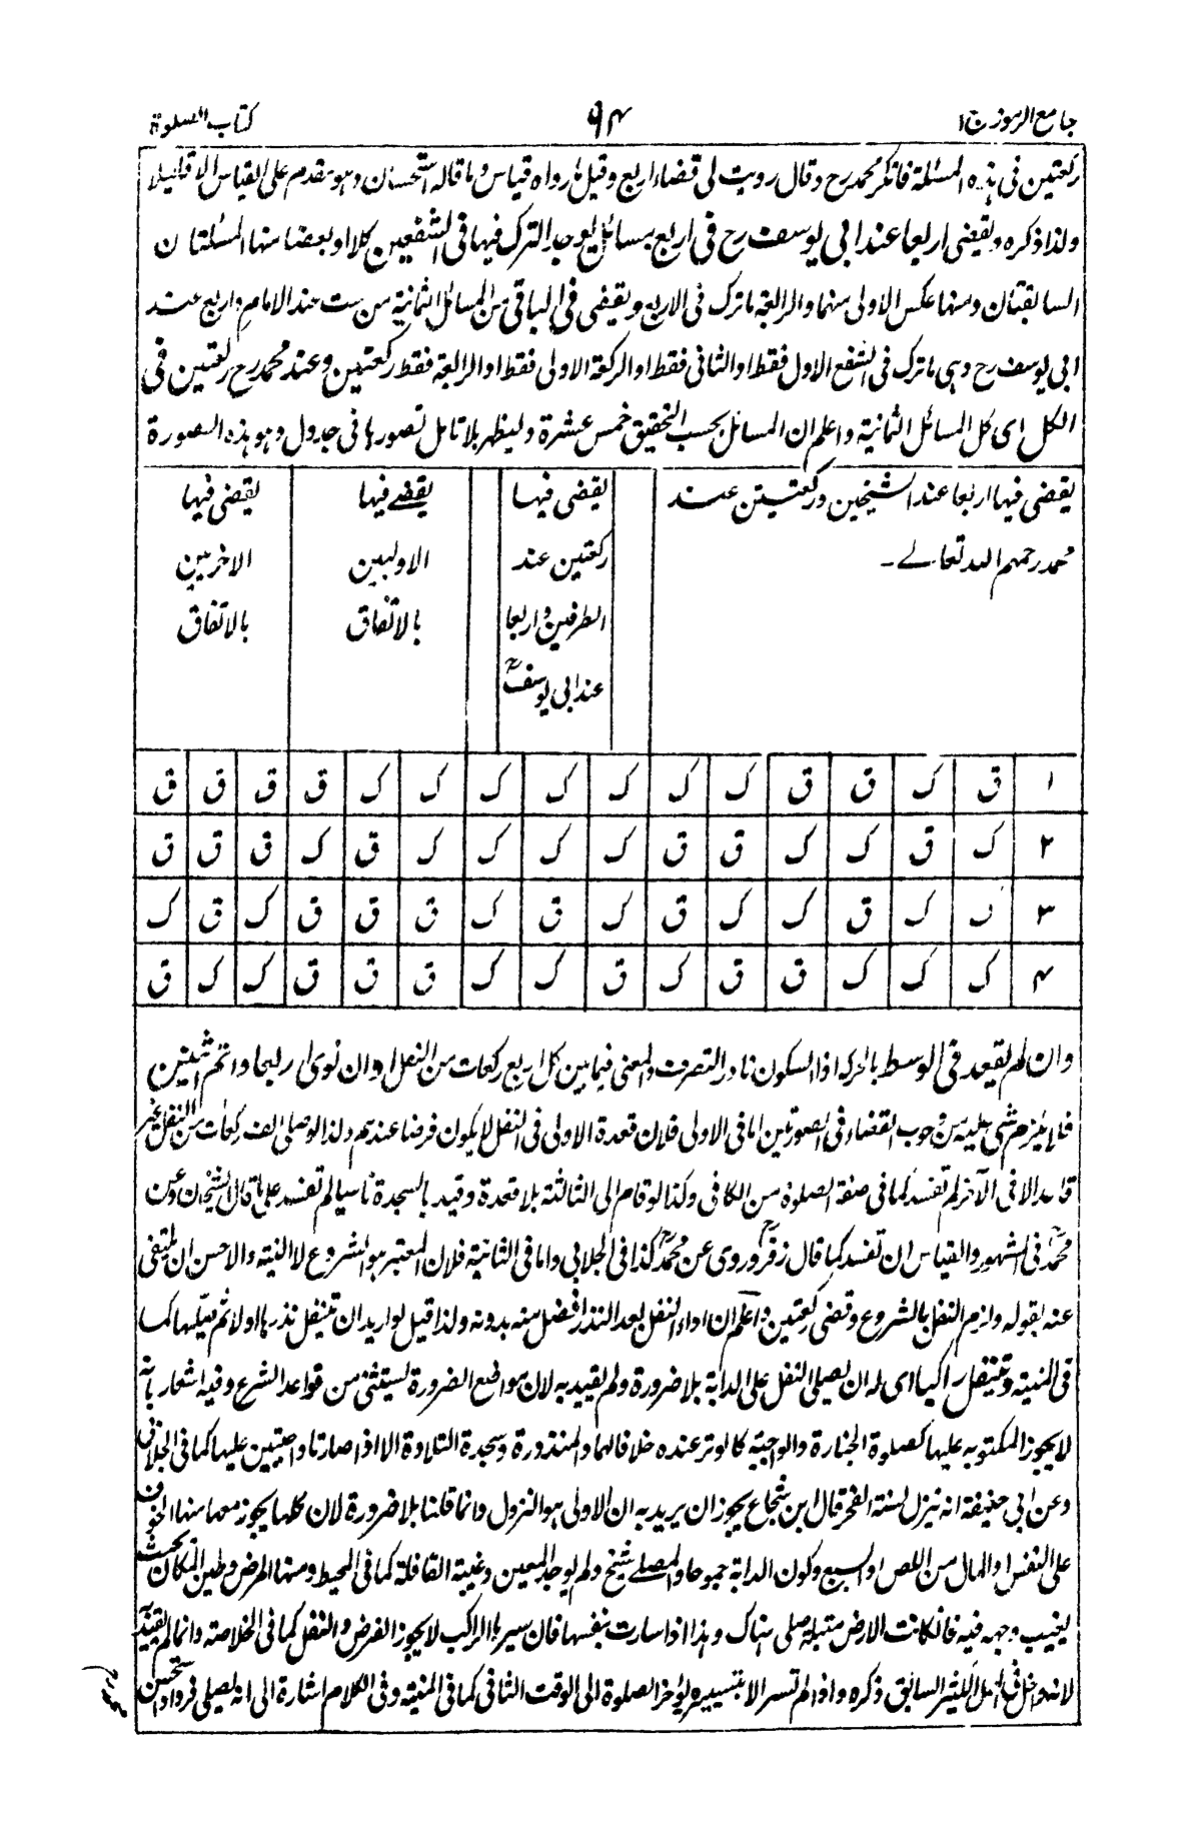 جامع الرموز ج١
٩٤
كتاب الصلوة
ركعتين فى هذه المسئلة فانكر محمد رح وقال رويت لى قضاء اربع وقيل ما رواه قياس وما قاله استحسان وهو مقدم على القياس الا قليلا
ولذا ذكره ويقضى اربعا عند ابى يوسف رح فى اربع مسائل يوجد الترك فيها فى الشفعين كلا او بعضا منها المسئلتان
السابقتان ومنها عكس الاولى منهما والرابعة ما ترك فى الاربع ويقضى فى الباقى من المسائل الثمانية من ست عند الامام واربع عند
ابى يوسف رح وهى ما ترك فى الشفع الاول فقط او الثانى فقط او الركعة الاولى فقط او الرابعة فقط ركعتين وعند محمد رح ركعتين فى
الكل اى كل المسائل الثمانية واعلم ان المسائل بحسب التحقيق خمس عشرة وليظهر بلا تامل تصورها فى جدول وهو بهذه الصورة
يقضى فيها اربعا عند الشيخين وركعتين عند
محمد رحمهم الله تعالے ۔
يقضى فيها
ركعتين عند
الطرفين واربعا
عند ابى يوسف رح
يقضے فيها
الاوليين
بالاتفاق
يقضى فيها
الاخريين
بالاتفاق
١ ق ك ق ق ك ك ك ك ك ك ك ق ق ق ق
٢ ك ق ك ك ق ق ك ك ك ك ق ك ق ق ق
٣ ك ك ق ك ك ق ك ق ك ق ق ق ك ق ك
٤ ك ك ك ق ق ك ق ك ك ق ق ق ك ك ق
وان لم يقعد فى الوسط بالحركة اذ السكون نادر التصرف والمعنى فيما بين كل اربع ركعات من النفل او ان نوى اربعا واتم اثنين
فلا يلزم شئ عليه من وجوب القضاء فى الصورتين اما فى الاولى فلان قعدة الاولى فى النفل لا يكون فرضا عندهم ولذا لو صلى الف ركعات من النفل غير
قاعد الا فى الآخر لم تفسد كما فى صفة الصلوة من الكافى وكذا لو قام الى الثالثة بلا قعدة وقيد بالسجدة ناسيا لم تفسد على ما قال الشيخان وعن
محمد رح فى المشهور والقياس ان تفسد كما قال زفر رح وروى عن محمد رح كذا فى الجلابى واما فى الثانية فلان المعتبر هو الشروع لا النية والاحسن ان يكتفى
عنه بقوله ولزم النفل بالشروع وقضى ركعتين واعلم ان اداء النفل بعد النذر افضل منه بدونه ولذا قيل لو اريد ان يتنفل نذرها اولا ثم يصليها كما
فى المنية ويتنفل راكبا اى له ان يصلى النفل على الدابة بلا ضرورة ولم يقيد به لان مواضع الضرورة تستثنى من قواعد الشرع وفيه اشعار بانه
لا يجوز المكتوبة عليها كصلوة الجنازة والواجبة كالوتر عنده خلافا لهما والمنذورة وسجدة التلاوة الا اذا صارتا واجبتين عليها كما فى الجلابى
وعن ابى حنيفة انه ينزل لسنة الفجر قال ابن شجاع يجوز ان يريد به ان الاولى هو النزول وانما قلنا بلا ضرورة لان كلها يجوز معها منها الخوف
على النفس او المال من اللص او السبع وكون الدابة جموحا والمصلے شيخ ولم يوجد المعين وغيبة القافلة كما فى المحيط ومنها المرض وطين المكان بحيث
يغيب وجهه فيه فان كانت الارض مبتلة صلى هناك وهذا اذا سارت بنفسها فان سيرها الراكب لا يجوز الفرض والنفل كما فى الخلاصة وانما لم يقيد به
لانه داخل فى العمل الكثير السابق ذكره واذا لم تسر الا بتسييره يؤخر الصلوة الى الوقت الثانى كما فى المنية وفى الكلام اشارة الى انه يصلى فرادا